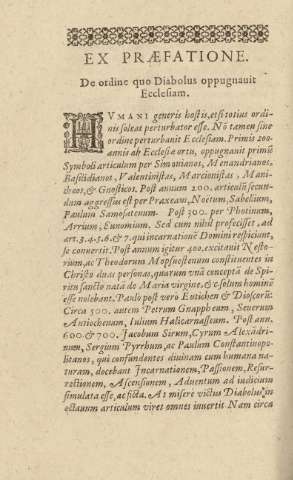 EX PRÆFATIONE.
De ordine quo Diabolus oppugnauit
Ecclesiam.
HVMANI generis hostis, etsi totius ordi-
nis soleat perturbator esse. Nō tamen sine
ordine perturbauit Ecclesiam. Primis 200.
annis ab Ecclesiæ ortu, oppugnauit primū
Symboli articulum per Simonianos, Menandrianos,
Basilidianos, Valentinistas, Marcionistas, Mani-
cheos, & Gnosticos. Post annum 200. articulū secun-
dum aggressus est per Praxeam, Noëtum, Sabelium,
Paulum Samosatenum. Post 300. per Photinum,
Arrium, Eunomium. Sed cum nihil profecisset, ad
art. 3.4.5.6. & 7. qui incarnationē Domini respiciunt,
se conuersit. Post annum igitur 400. excitauit Nesto-
rium, ac Theodorum Mopsuestenum constituentes in
Christo duas personas, quarum vnā concepta de Spi-
ritu sancto nata de Maria virgine, & c. solum hominē
esse nolebant. Paulo post verò Eutichen & Dioscorū:
Circa 500. autem Petrum Gnappheum, Seuerum
Antiochenum, Iulium Halicarnasseum. Post ann.
600. & 700. Jacobum Sirum, Cyrum Alexādri-
num, Sergium Pyrrhum, ac Paulum Constantinopo-
litanos, qui confundentes diuinam cum humana na-
turam, docebant Incarnationem, Passionem, Resur-
rectionem, Ascensionem, Aduentum ad iudicium
simulata esse, ac ficta. At miserè victus Diabolus, in
octauum articulum vires omnes inuertit Nam circa